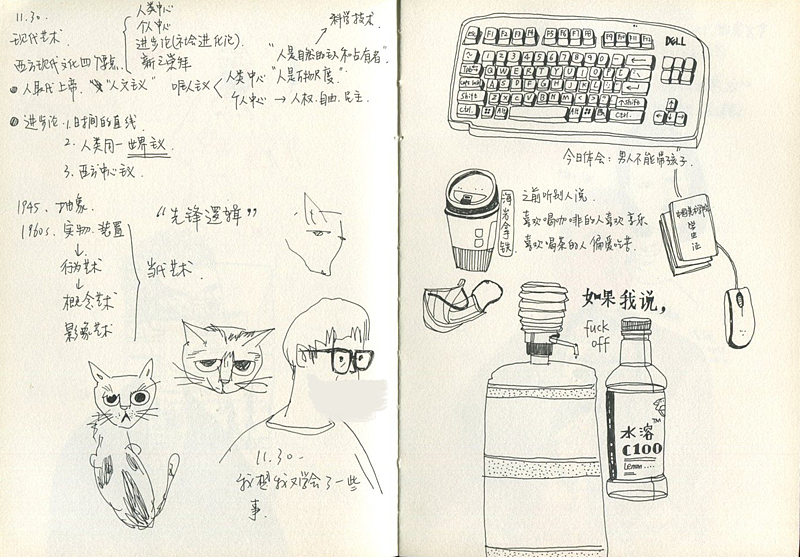 11.30.
现代艺术.
西方现代文化四个景点
人类中心
个人中心
进步论(社会进化论).
新三崇拜
科学技术.
"人是自然的主人和占有者"
人取代上帝. "人文主义" 唯人主义
人类中心 "人是万物尺度".
个人中心 → 人权.自由.民主.
进步论. 1.时间的直线.
2. 人类同一世界主义
3. 西方中心主义.
1945. 抽象.
1960s. 实物. 装置
行为艺术
概念艺术
影象艺术
当代艺术.
"先锋逻辑"
11.30.
我想我又学会了一些
事.
DELL
Esc F1 F2 F3 F4 F5 F6 F7 F8 F9 F10 F11 F12
Q W E R T Y U I O
A S D F G H J K L
Shift Z X C V B N M Shift
ctrl. Alt ctrl.
今日体会: 男人不能带孩子.
海岩拿铁.
之前听别人说.
喜欢喝咖啡的人喜欢享乐
喜欢喝茶的人偏爱吃苦.
学生
证
如果我说,
fuck
off
水溶
C100
TM
Lemon